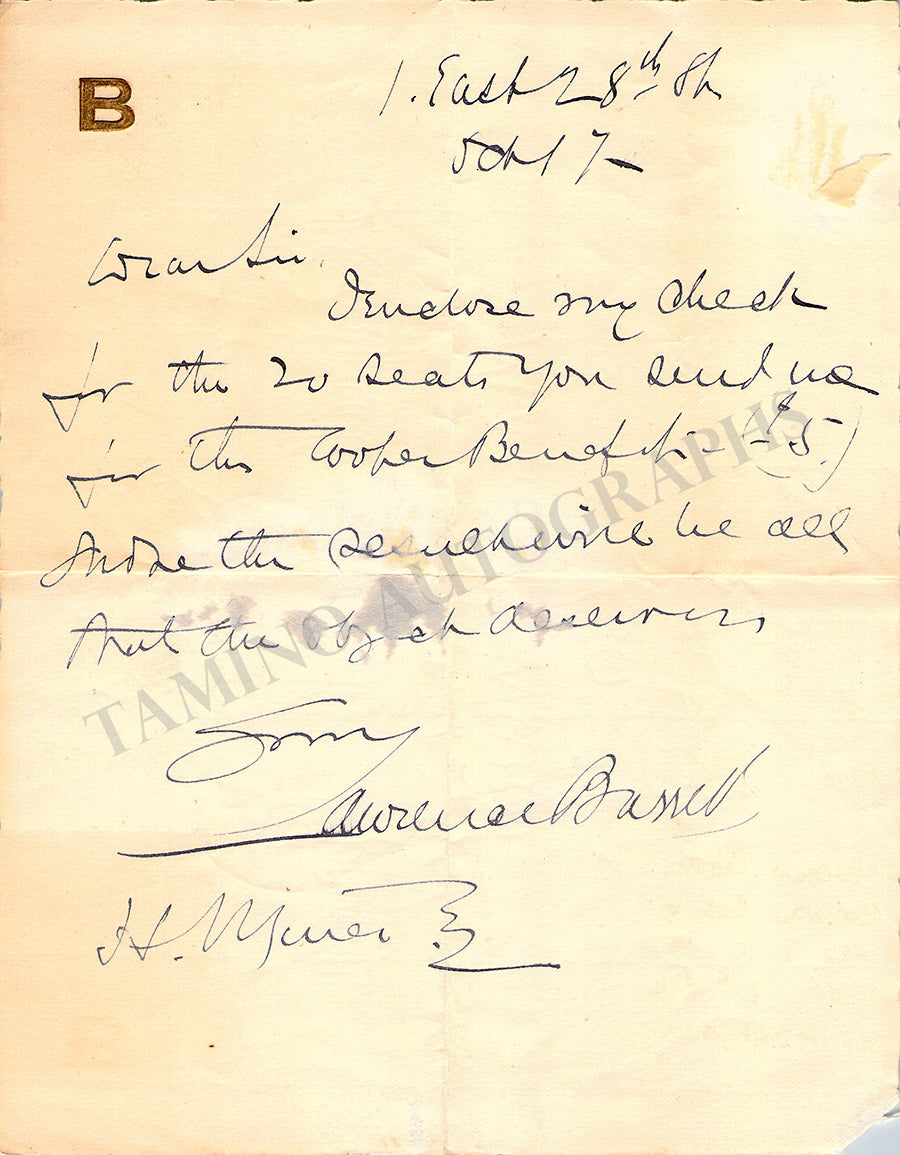 B
1. East 28th St
Oct 17-
Dear Sir.
I enclose my check
for the 20 seats you send me
for the Cooper Benefit - ($5.)
I hope the result will be all
that the object deserves,
Yours
Lawrence Barrett
H. Miner Esq
TAMINO AUTOGRAPHS